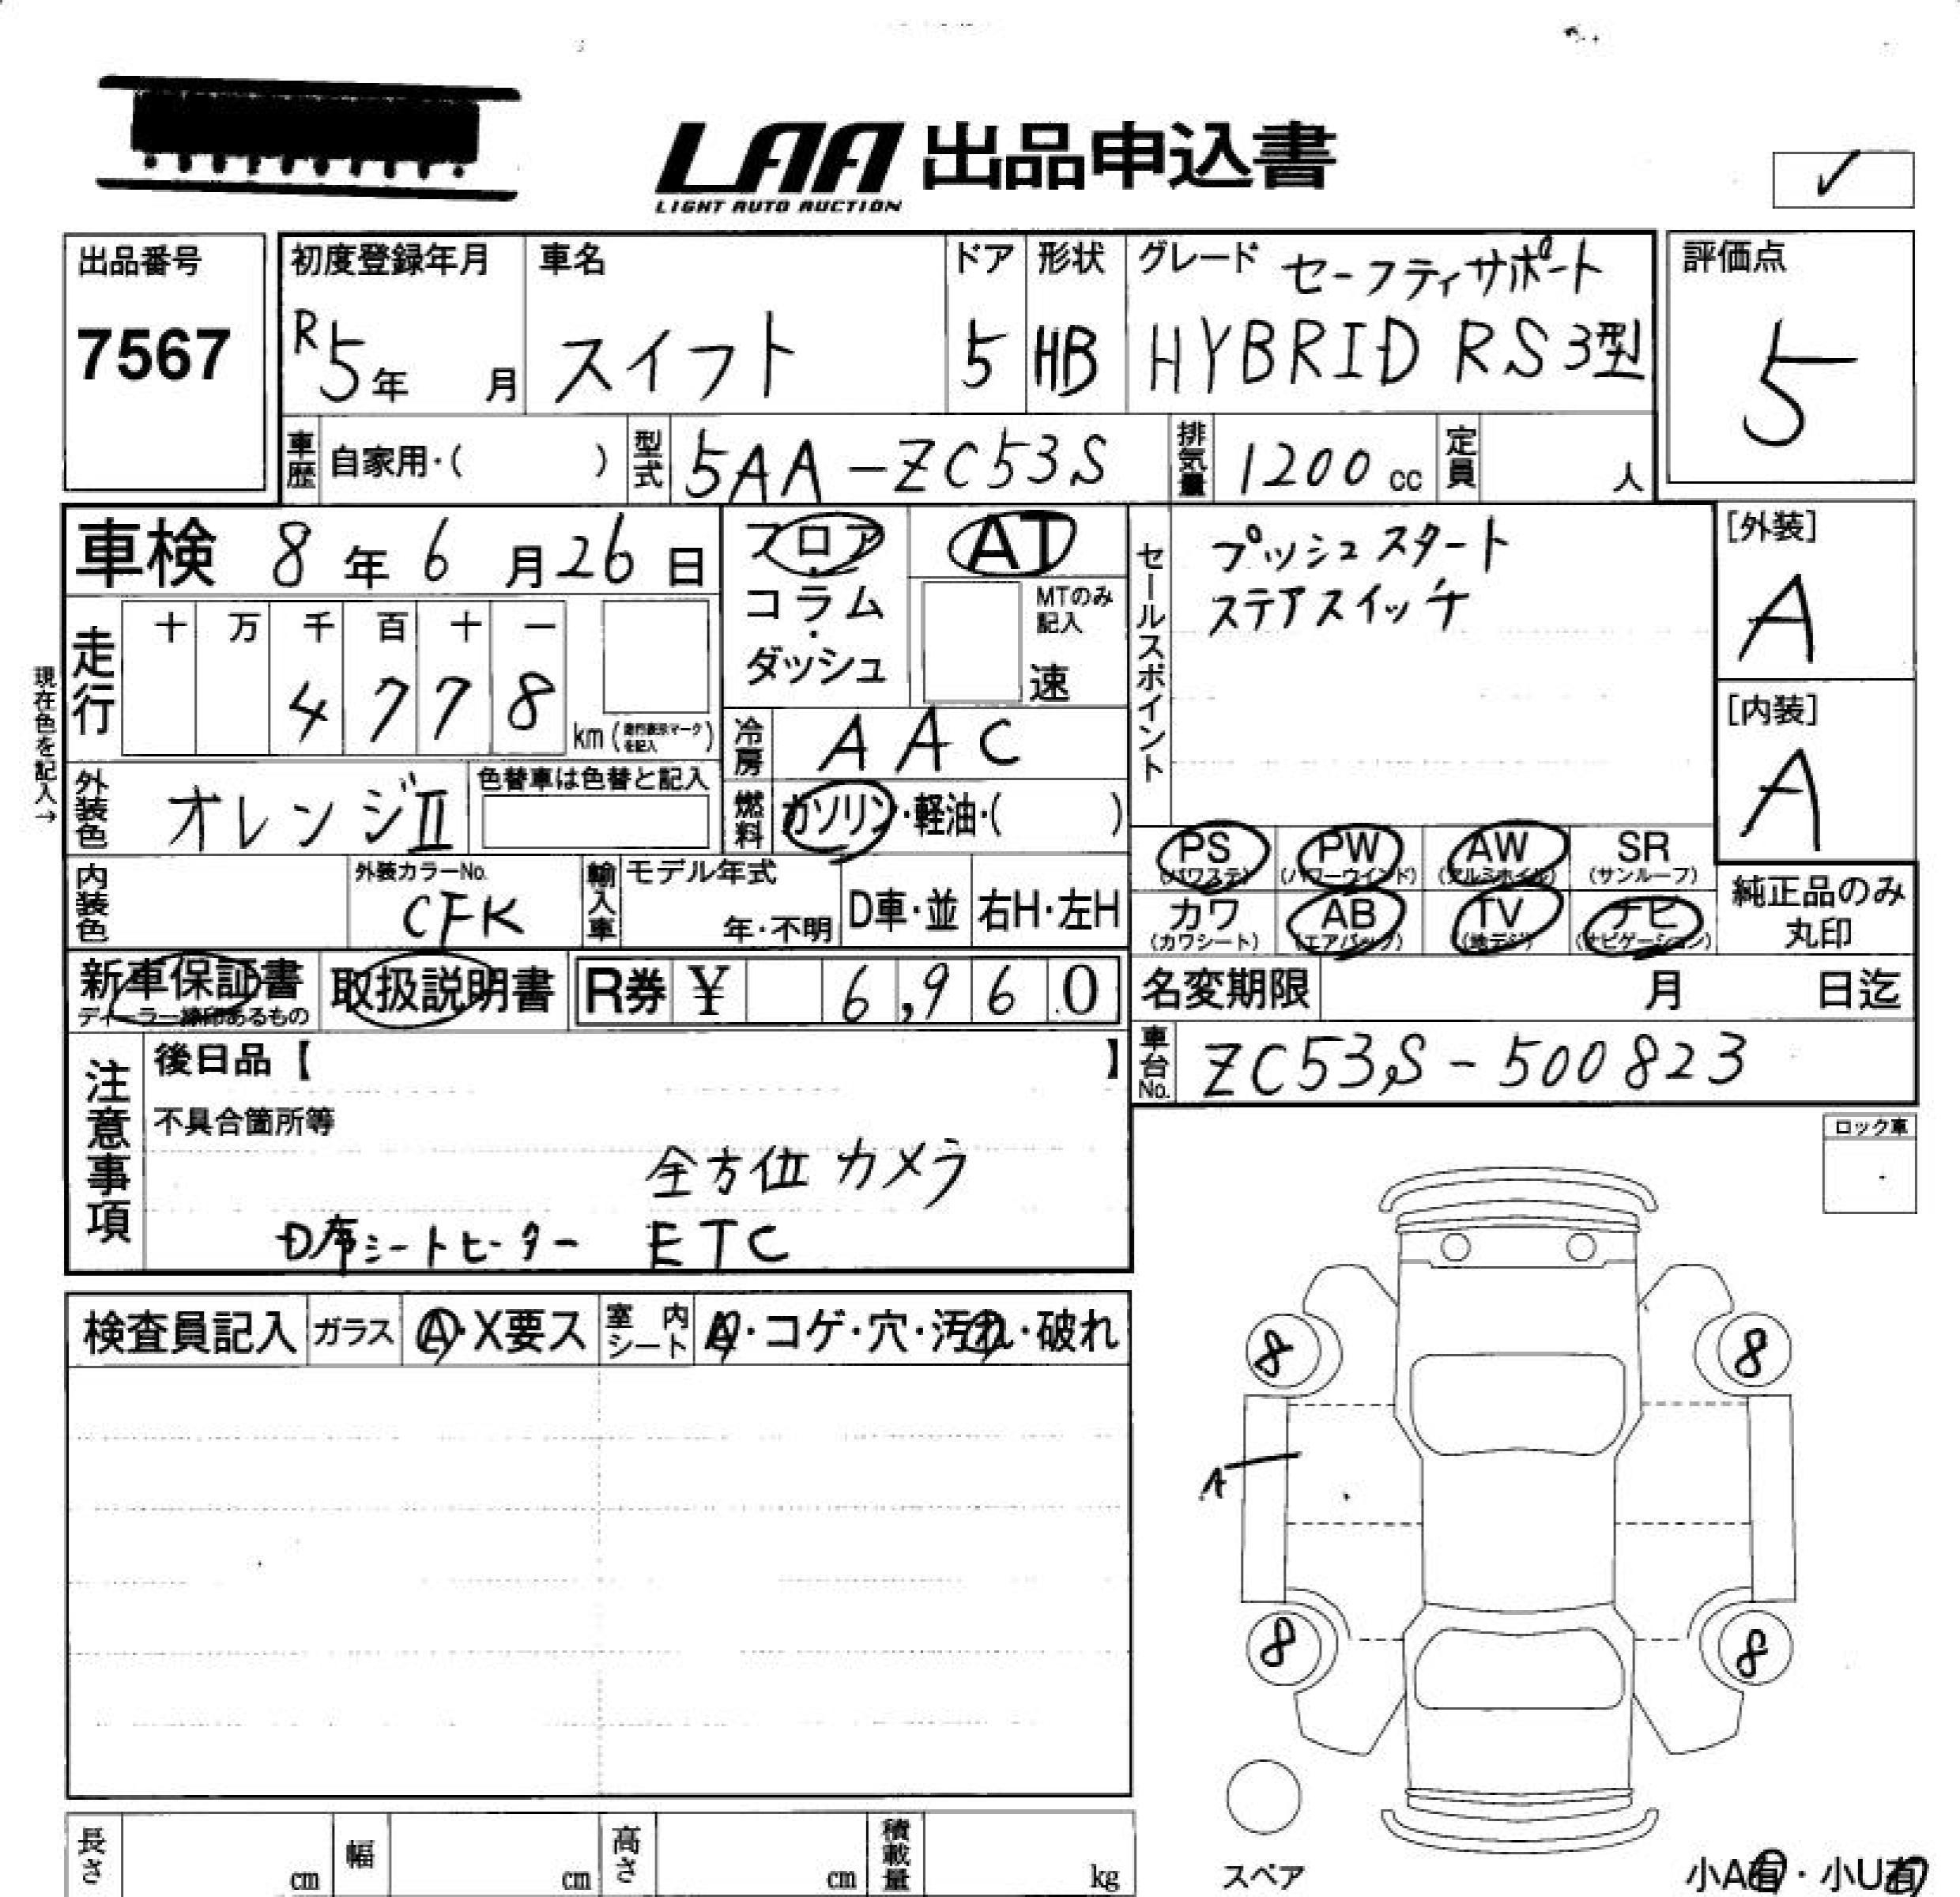 LAA 出品申込書
LIGHT AUTO AUCTION
✓
出品番号
7567
初度登録年月
R5年 月
車名
スイフト
ドア
5
形状
HB
グレード セーフティサポート
HYBRID RS 3型
評価点
5
車歴 自家用・( )
型式 5AA-ZC53S
排気量 1200 cc
定員 人
車検 8年6月26日
フロア
・
コラム
・
ダッシュ
AT
MTのみ記入
速
セールスポイント
プッシュスタート
ステアスイッチ
[外装]
A
[内装]
A
現在色を記入→
走行 十 万 千 百 十 一
4 7 7 8
km (走行表示マークを記入)
冷房 AAC
外装色 オレンジII
色替車は色替と記入
燃料 ガソリン・軽油・( )
PS (パワステ)
PW (パワーウインド)
AW (アルミホイル)
SR (サンルーフ)
カワ (カワシート)
AB (エアバック)
TV (地デジ)
ナビ (ナビゲーション)
純正品のみ
丸印
内装色
外装カラーNo.
CFK
輸入車
モデル年式
年・不明
D車・並
右H・左H
新車保証書
ディーラー捺印あるもの
取扱説明書
R券 ¥ 6,960
名変期限 月 日迄
車台No. ZC53S-500823
注意事項
後日品【 】
不具合箇所等
全方位カメラ
D席シートヒーター ETC
ロック車
検査員記入
ガラス A・X要ス
室内シート A・コゲ・穴・汚れ・破れ
8 8
A
8 8
スペア
小A有・小U有
長さ cm
幅 cm
高さ cm
積載量 kg